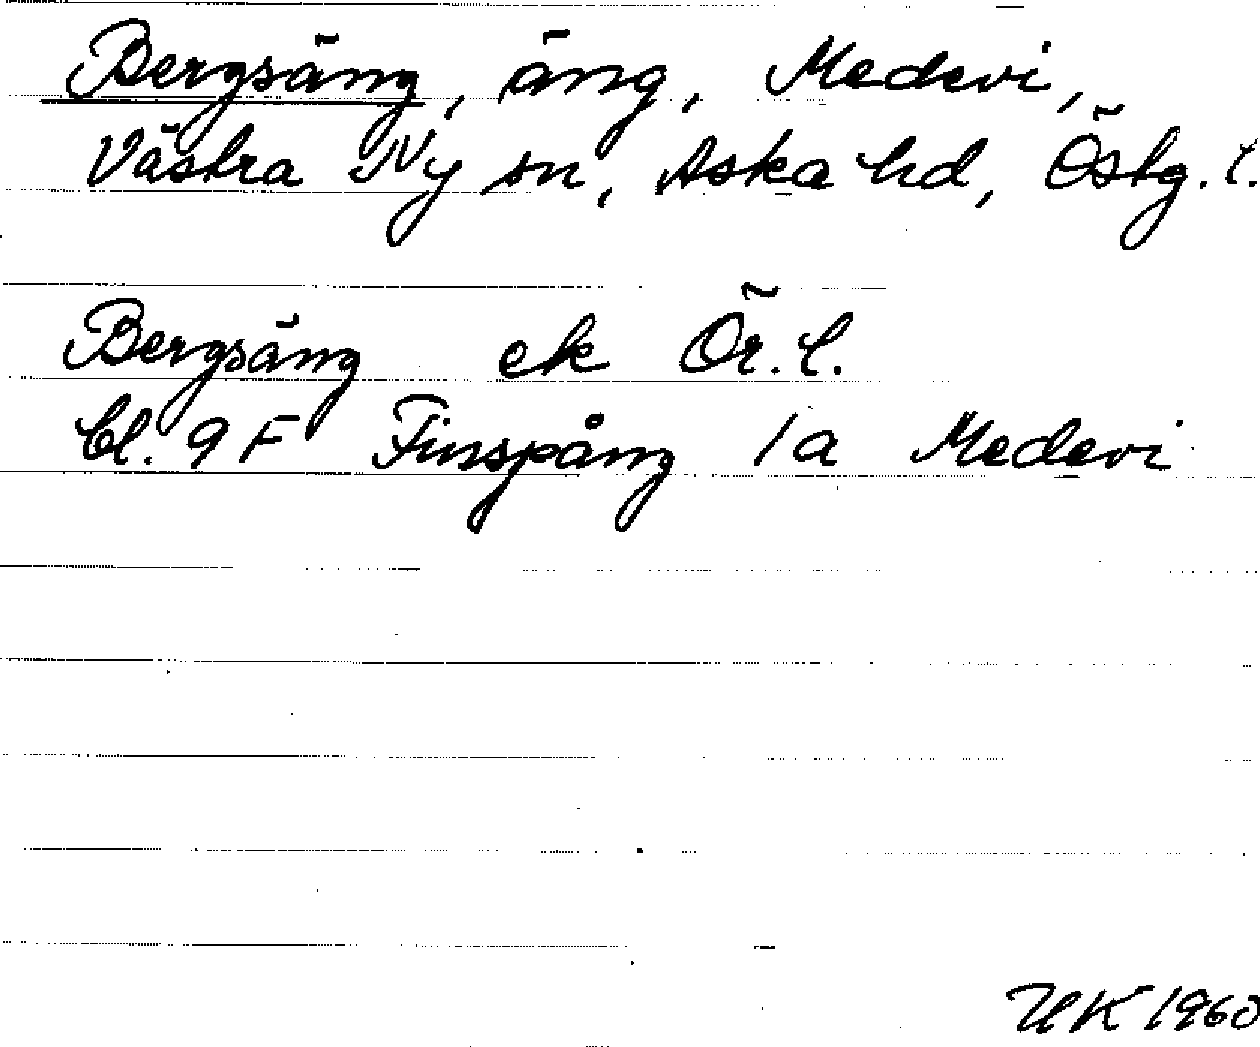 Bergsäng, äng, Medevi,
Västra Ny sn, Aska hd, Östg. l.
Bergsäng ek Ör. l.
bl. 9 F Finspång 1a Medevi
UK 1960